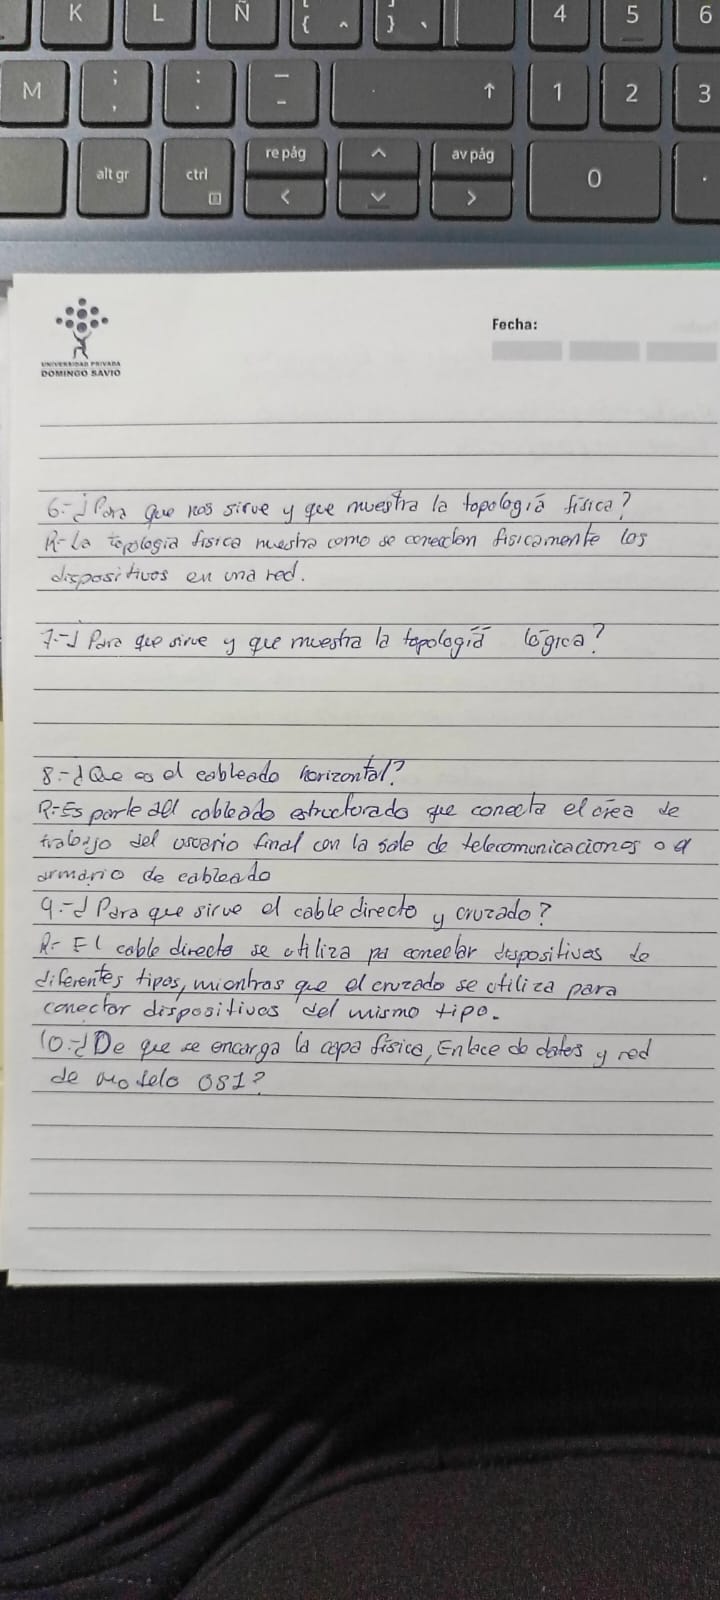 K L Ñ [ { ^ ] } ` 4 5 6
M ; , : . — - ↑ 1 2 3
alt gr ctrl re pág < ^ v av pág > 0 .
UNIVERSIDAD PRIVADA
DOMINGO SAVIO
Fecha:
6.-¿Para que nos sirve y que muestra la topologiá física?
R-La topologia fisica muestra como se conectan fisicamente los
dispositivos en una red.
7.-¿Para que sirve y que muestra la topologiá lógica?
8.-¿Que es el cableado horizontal?
R-Es parte del cableado estructurado que conecta el área de
trabajo del usuario final con la sala de telecomunicaciones o el
armario de cableado
9.-¿Para que sirve el cable directo y cruzado?
R- El cable directo se utiliza pa conectar dispositivos de
diferentes tipos, mientras que el cruzado se utiliza para
conectar dispositivos del mismo tipo.
10.-¿De que se encarga la capa física, Enlace de datos y red
de modelo OSI?